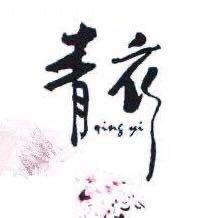 青衣
qing yi